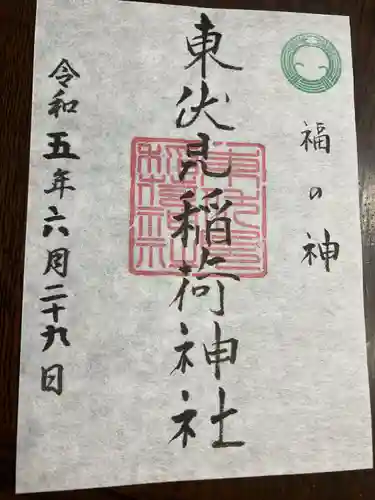 福の神
東伏見稲荷神社
令和五年六月二十九日